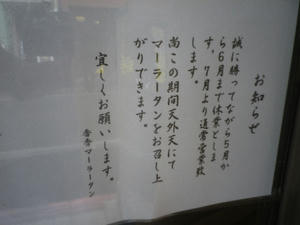 お知らせ
誠に勝ってながら5月か
ら6月まで休業としま
す。7月より通常営業致
します。
尚この期間天外天にて
マーラータンをお召し上
がりできます。
宜しくお願いします。
香香マーラータン